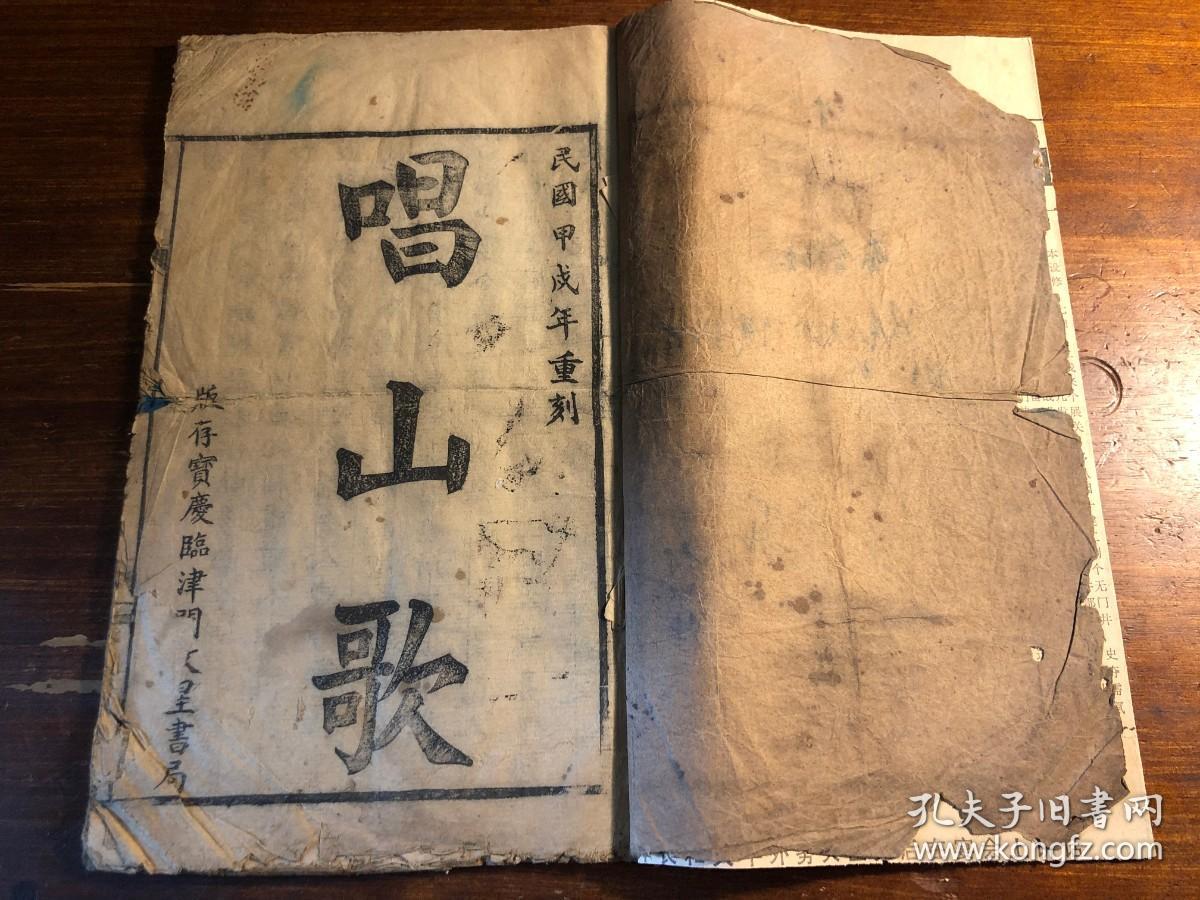 民國甲戍年重刻
唱山歌
版存寶慶臨津門文星書局
孔夫子旧书网
www.kongfz.com